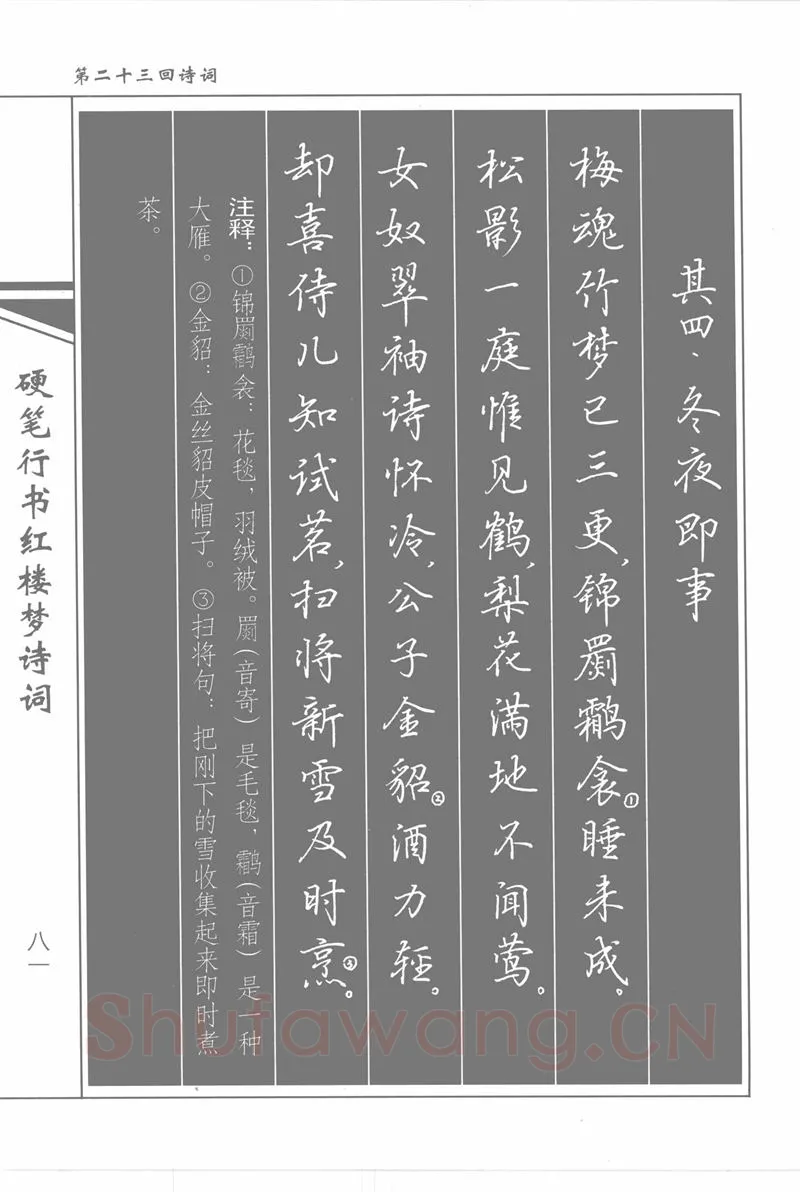 第二十三回诗词
其四·冬夜即事
梅魂竹梦已三更，锦罽鹴衾①睡未成。
松影一庭惟见鹤，梨花满地不闻莺。
女奴翠袖诗怀冷，公子金貂②酒力轻。
却喜侍儿知试茗，扫将新雪及时烹③。
注释：①锦罽鹴衾：花毯，羽绒被。罽(音寄)是毛毯，鹴(音霜)是一种
大雁。②金貂：金丝貂皮帽子。③扫将句：把刚下的雪收集起来即时煮
茶。
硬笔行书红楼梦诗词
八一
Shufawang.CN